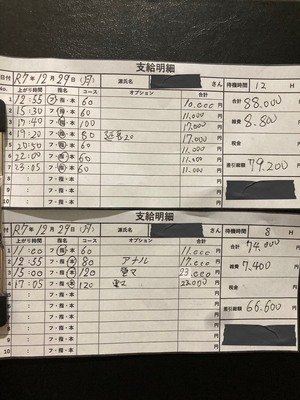 支給明細
日付 R7年 12月 29日 (月) 源氏名 さん 待機時間 12 H
No. 上がり時間 指名 コース オプション 合計
1 12:55 フ・指・本 60 10.000 円
2 15:30 フ・指・本 60 11.000 円
3 17:40 フ・指・本 100 17.000 円
4 19:20 フ・指・本 80 延長20 17.000 円
5 20:50 フ・指・本 60 11.000 円
6 22:00 フ・指・本 60 11.000 円
7 23:05 フ・指・本 60 11.000 円
8
9
10
合計 88,000 円
雑費 8.800 円
税金 円
差引総額 79,200 円
支給明細
日付 R7年 12月 29日 (月) 源氏名 さん 待機時間 8 H
No. 上がり時間 指名 コース オプション 合計
1 11:00 フ・指・本 60 11.000 円
2 12:55 フ・指・本 80 アナル 17.000 円
3 15:00 フ・指・本 120 電マ 23.000 円
4 17:05 フ・指・本 120 円
5 : フ・指・本 円
6 : フ・指・本 円
7 : フ・指・本 円
8 : フ・指・本 円
9 : フ・指・本 円
10 : フ・指・本 円
合計 74,000 円
雑費 7,400 円
税金 円
差引総額 66,600 円